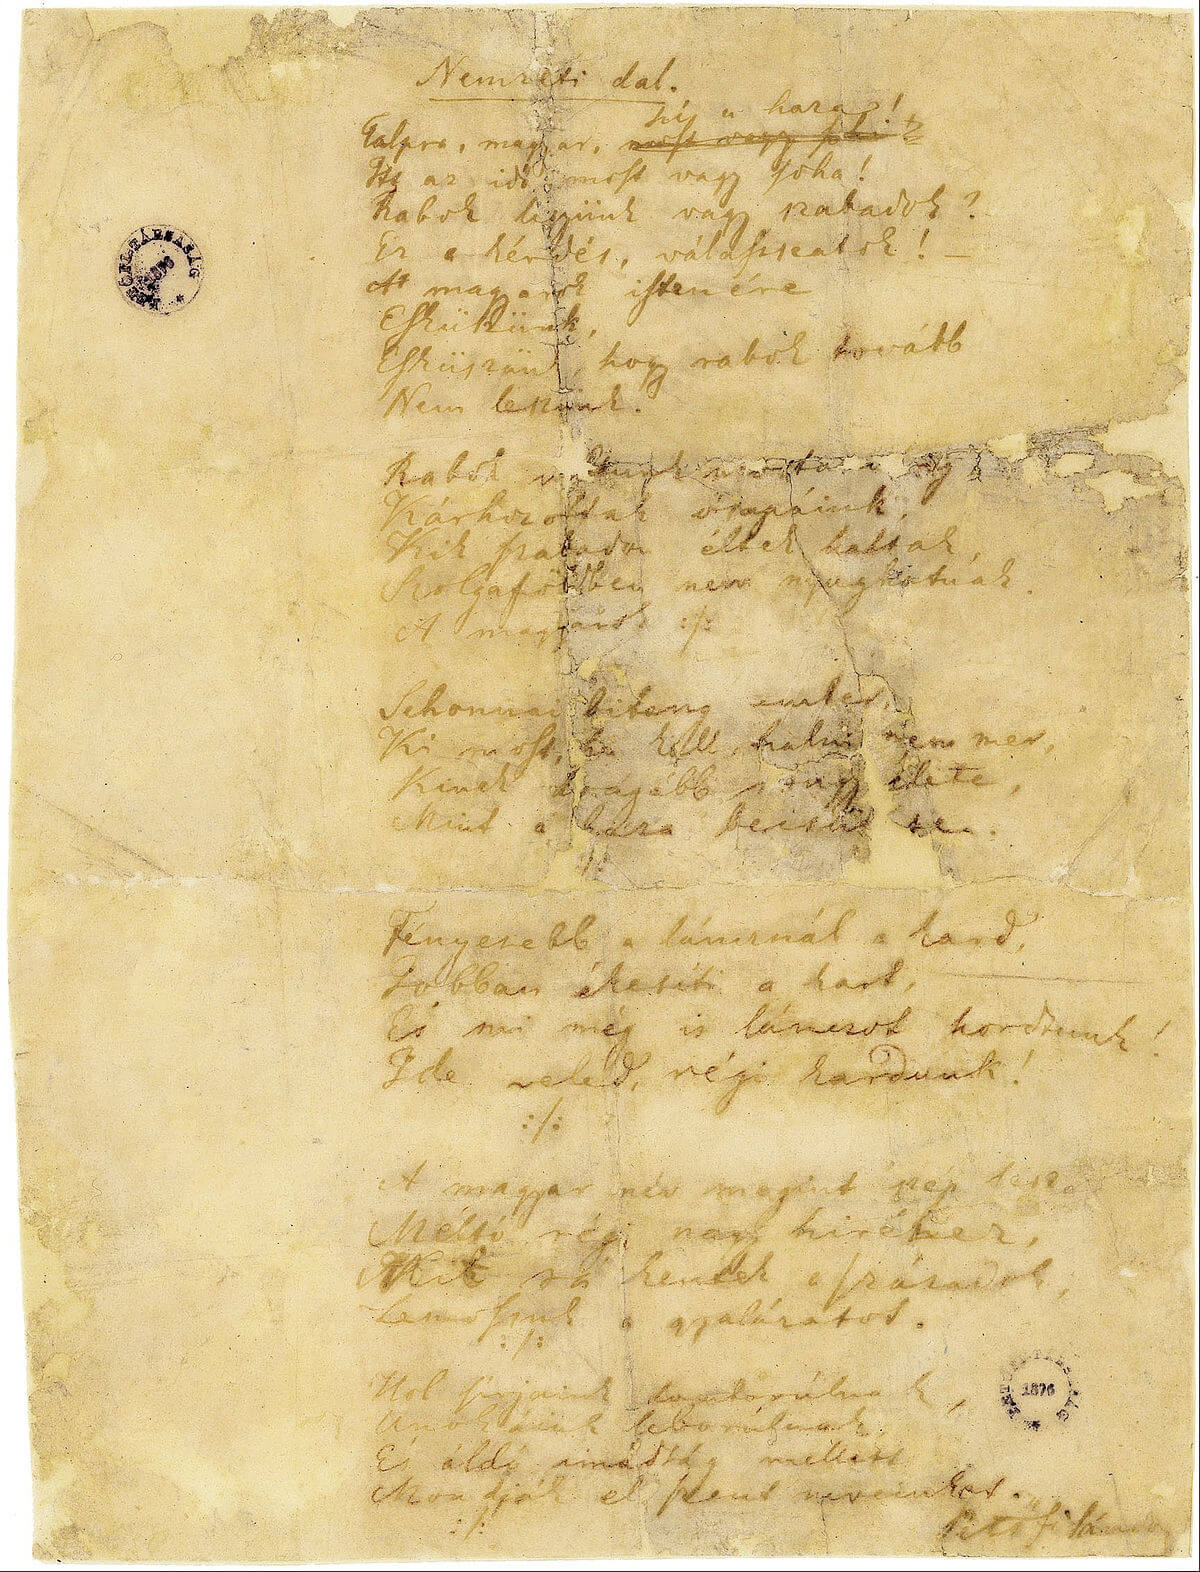 Nemzeti dal.
hí a haza!
Talpra, magyar, most vagy soha
Itt az idő, most vagy soha!
Rabok legyünk vagy szabadok?
Ez a kérdés, válasszatok! –
A magyarok istenére
Esküszünk,
Esküszünk, hogy rabok tovább
Nem leszünk.
Rabok voltunk mostanáig
Kárhozottak ősapáink,
Kik szabadon éltek haltak,
Szolgaföldben nem nyughatnak
A magyarok :/:
Sehonnai bitang ember,
Ki most, ha kell, halni nem mer,
Kinek drágább rongy élete,
Mint a haza becsülete.
:/:
Fényesebb a láncznál a kard,
Jobban ékesíti a kart,
És mi még is lánczot hordtunk!
Ide veled, régi kardunk!
:/:
A magyar név megint szép lesz
Méltó régi nagy hiréhez,
Mit rá kentek a századok,
Lemossuk a gyalázatot.
:/:
Hol sírjaink domborúlnak,
Unokáink leborúlnak,
És áldó imádság mellett
Mondják el szent neveinket.
:/:
Petőfi Sándor
1876